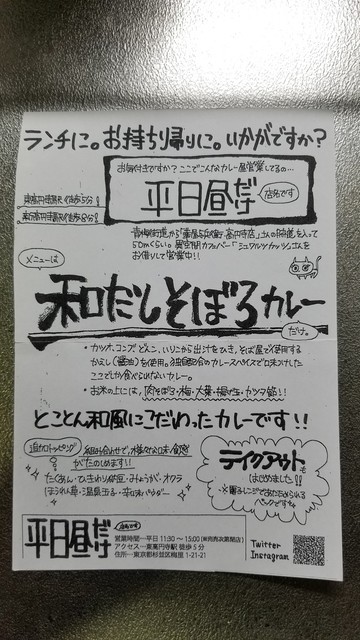 ランチに。お持ち帰りに。いかがですか?
お気付きですか?ここでこんなカレー昼営業してるの…
平日昼だけ
店名です
東高円寺駅徒歩5分!
新高円寺駅徒歩8分!
青梅街道から「薬屋与兵衛 高円寺店」さんの脇道を入って
50mくらい。異空間カフェバー「シュワルツカッツ」さんを
お借りして営業中!!
メニューは
和だしそぼろカレー
だけ。
・カツオ、コンブ、どんこ、いりこから出汁をひき、そば屋で使用する
かえし(醤油)を使用。独自配合のカレースパイスで味つけした
ここでしか食べられないカレー。
・お米の上には、肉そぼろ・梅・大葉・揚げ玉・カツオ節!!
とことん和風にこだわったカレーです!!
追加トッピング
組み合わせで、様々な味・食感
がたのしめます!!
たくあん・ひきわり納豆・みょうが・オクラ
ほうれん草・温泉玉子・辛味パウダー
テイクアウトも
はじめました!!
※電子レンジであたためられる
パックです
平日昼だけ
店名です
営業時間―平日 11:30 ~ 15:00 (※肉売次第閉店)
アクセス―東高円寺駅 徒歩 5 分
住所―東京都杉並区梅里 1-21-21
Twitter
Instagram